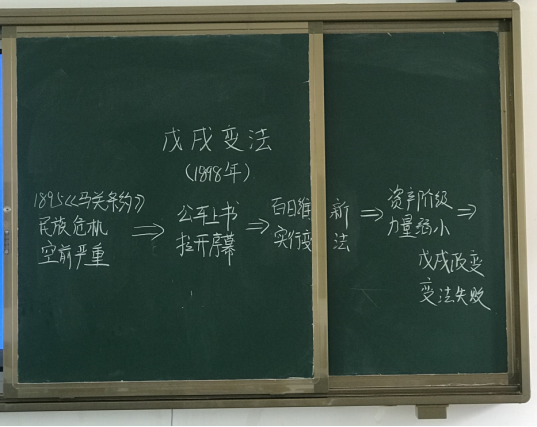 戊戌变法
(1898年)
1895《马关条约》
民族危机
空前严重
⇒
公车上书
拉开序幕
⇒
百日维新
实行变法
⇒
资产阶级
力量弱小
⇒
戊戌政变
变法失败